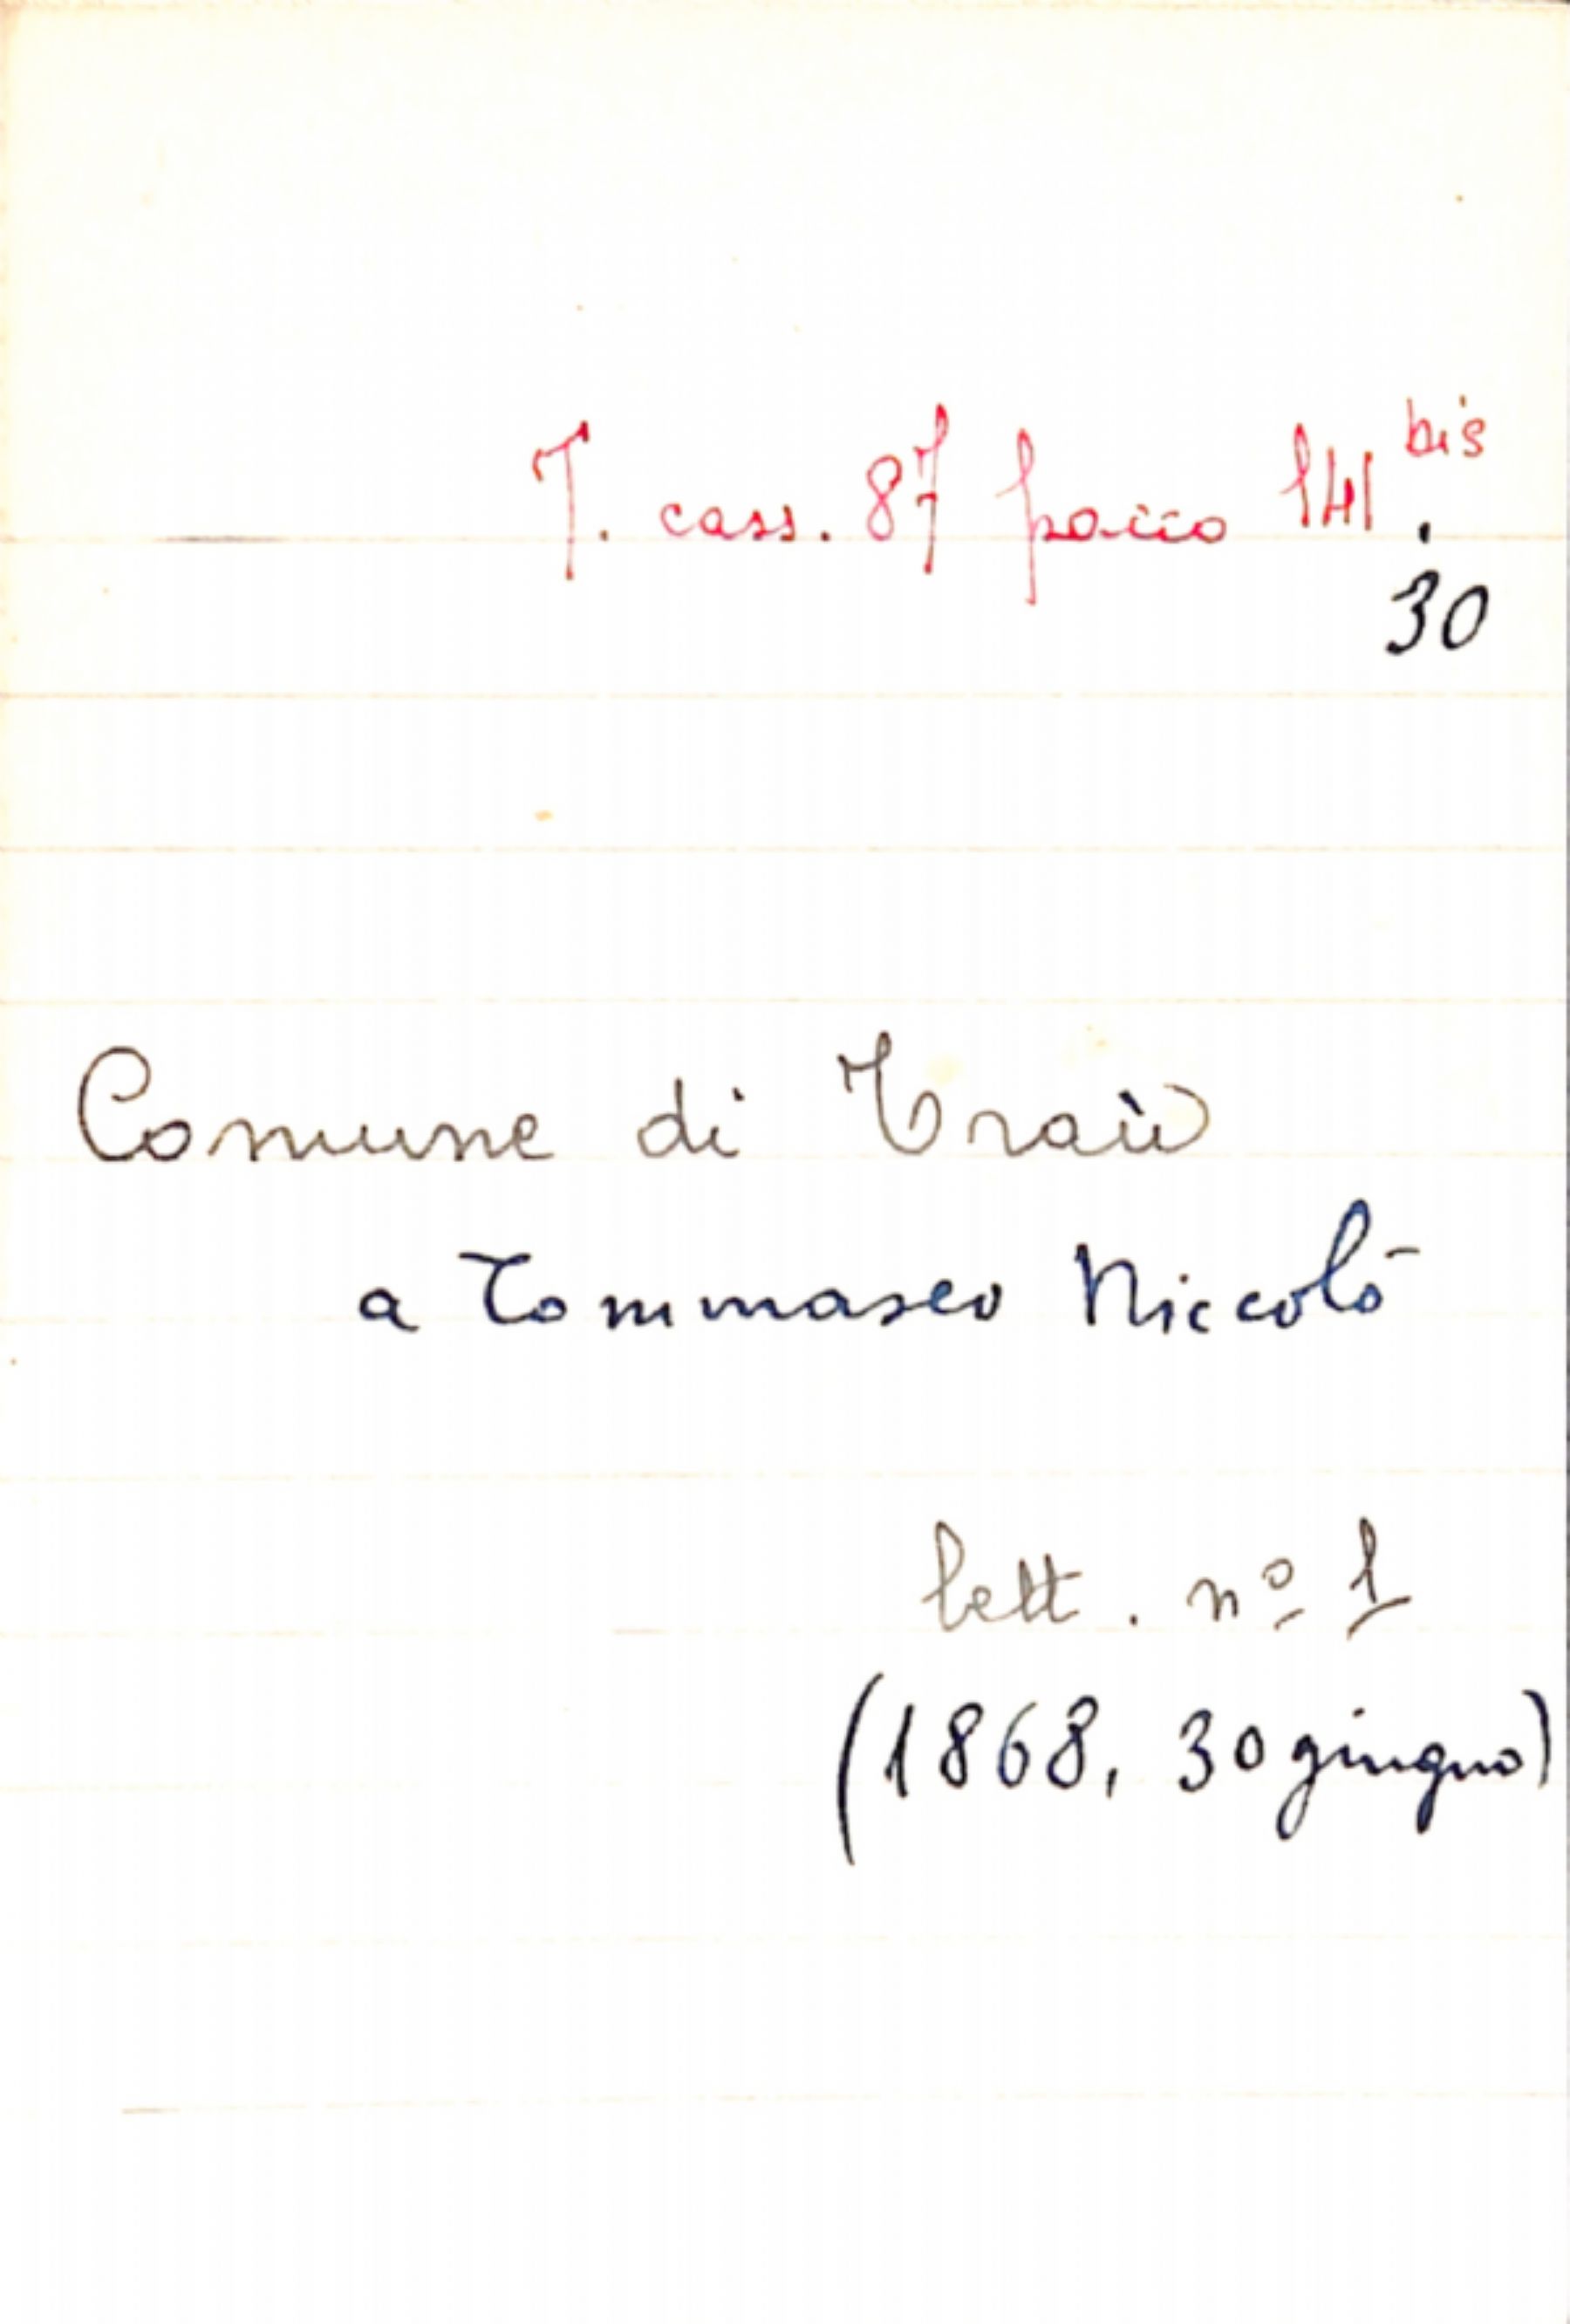 T. cass. 87 pacco 141 bis.
30
Comune di Traù
a Tommaseo Niccolò
lett. nº 1
(1868, 30 giugno)